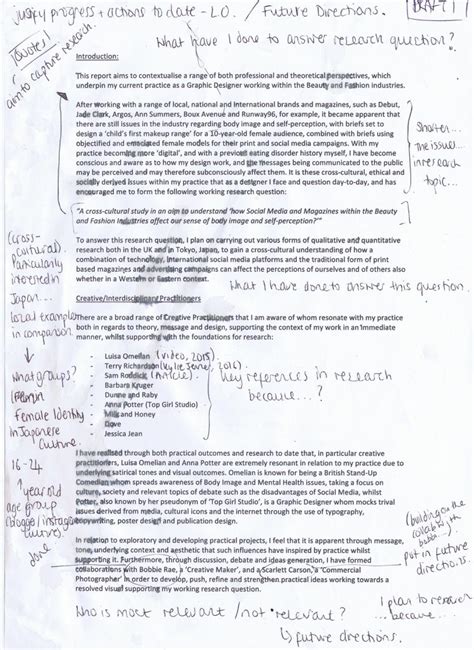 justify progress + actions to date - LO. / Future Directions.
DRAFT 1
What have I done to answer research question?
Quotes!
aim to capture research.
Introduction:
This report aims to contextualise a range of both professional and theoretical perspectives, which
underpin my current practice as a Graphic Designer working within the Beauty and Fashion Industries.
After working with a range of local, national and International brands and magazines, such as Debut,
Jade Clark, Argos, Ann Summers, Boux Avenue and Runway96, for example, it became apparent that
there are still issues in the industry regarding body image and self-perception, with briefs set to
design a 'child's first makeup range' for a 10-year-old female audience, combined with briefs using
objectified and emaciated female models for their print and social media campaigns. With my
practice becoming more 'digital', and with a previous eating disorder history myself, I have become
conscious and aware as to how my design work, and the messages being communicated to the public
may be perceived and may therefore subconsciously affect them. It is these cross-cultural, ethical and
socially derived issues within my practice that as a designer I face and question day-to-day, and has
encouraged me to form the following working research question:
Shorten...
the issue...
in research
topic...
"A cross-cultural study in an aim to understand 'how Social Media and Magazines within the Beauty
and Fashion Industries affect our sense of body image and self-perception?'"
To answer this research question, I plan on carrying out various forms of qualitative and quantitative
research both in the UK and in Tokyo, Japan, to gain a cross-cultural understanding of how a
combination of technology, international social media platforms and the traditional form of print
based magazines and advertising campaigns can affect the perceptions of ourselves and of others also
whether in a Western or Eastern context.
What I have done to answer this question.
(cross-
cultural).
Particularly
interested in
Japan...
local example
in comparison
What groups?
Female Identity
in Japanese
Culture.
16-24
year old
age group
done
Creative/Interdisciplinary Practitioners
There are a broad range of Creative Practitioners that I am aware of whom resonate with my practice
both in regards to theory, message and design, supporting the context of my work in an immediate
manner, whilst supporting with the foundations for research:
- Luisa Omelian (video, 2015).
- Terry Richardson (Kylie Jenner, 2016).
- Sam Roddick (Article).
- Barbara Kruger
- Dunne and Raby
- Anna Potter (Top Girl Studio)
- Milk and Honey
- Dove
- Jessica Jean
Key references in research
because...?
I have realised through both practical outcomes and research to date that, in particular creative
practitioners, Luisa Omelian and Anna Potter are extremely resonant in relation to my practice due to
underlying satirical tones and visual outcomes. Omelian is known for being a British Stand-Up
Comedian whom spreads awareness of Body Image and Mental Health issues, taking a focus on
culture, society and relevant topics of debate such as the disadvantages of Social Media, whilst
Potter, also known by her pseudonym of 'Top Girl Studio', is a Graphic Designer whom mocks trivial
issues derived from media, cultural icons and the internet through the use of typography,
copywriting, poster design and publication design.
In relation to exploratory and developing practical projects, I feel that it is apparent through message,
tone, underlying context and aesthetic that such influences have inspired by practice whilst
supporting it. Furthermore, through discussion, debate and ideas generation, I have formed
collaborations with Bobbie Rae, a 'Creative Maker', and a Scarlett Carson, a 'Commercial
Photographer' in order to develop, push, refine and strengthen practical ideas working towards a
resolved visual supporting my working research question.
put in future
directions.
I plan to research
... because...
Who is most relevant / not relevant?
future directions.